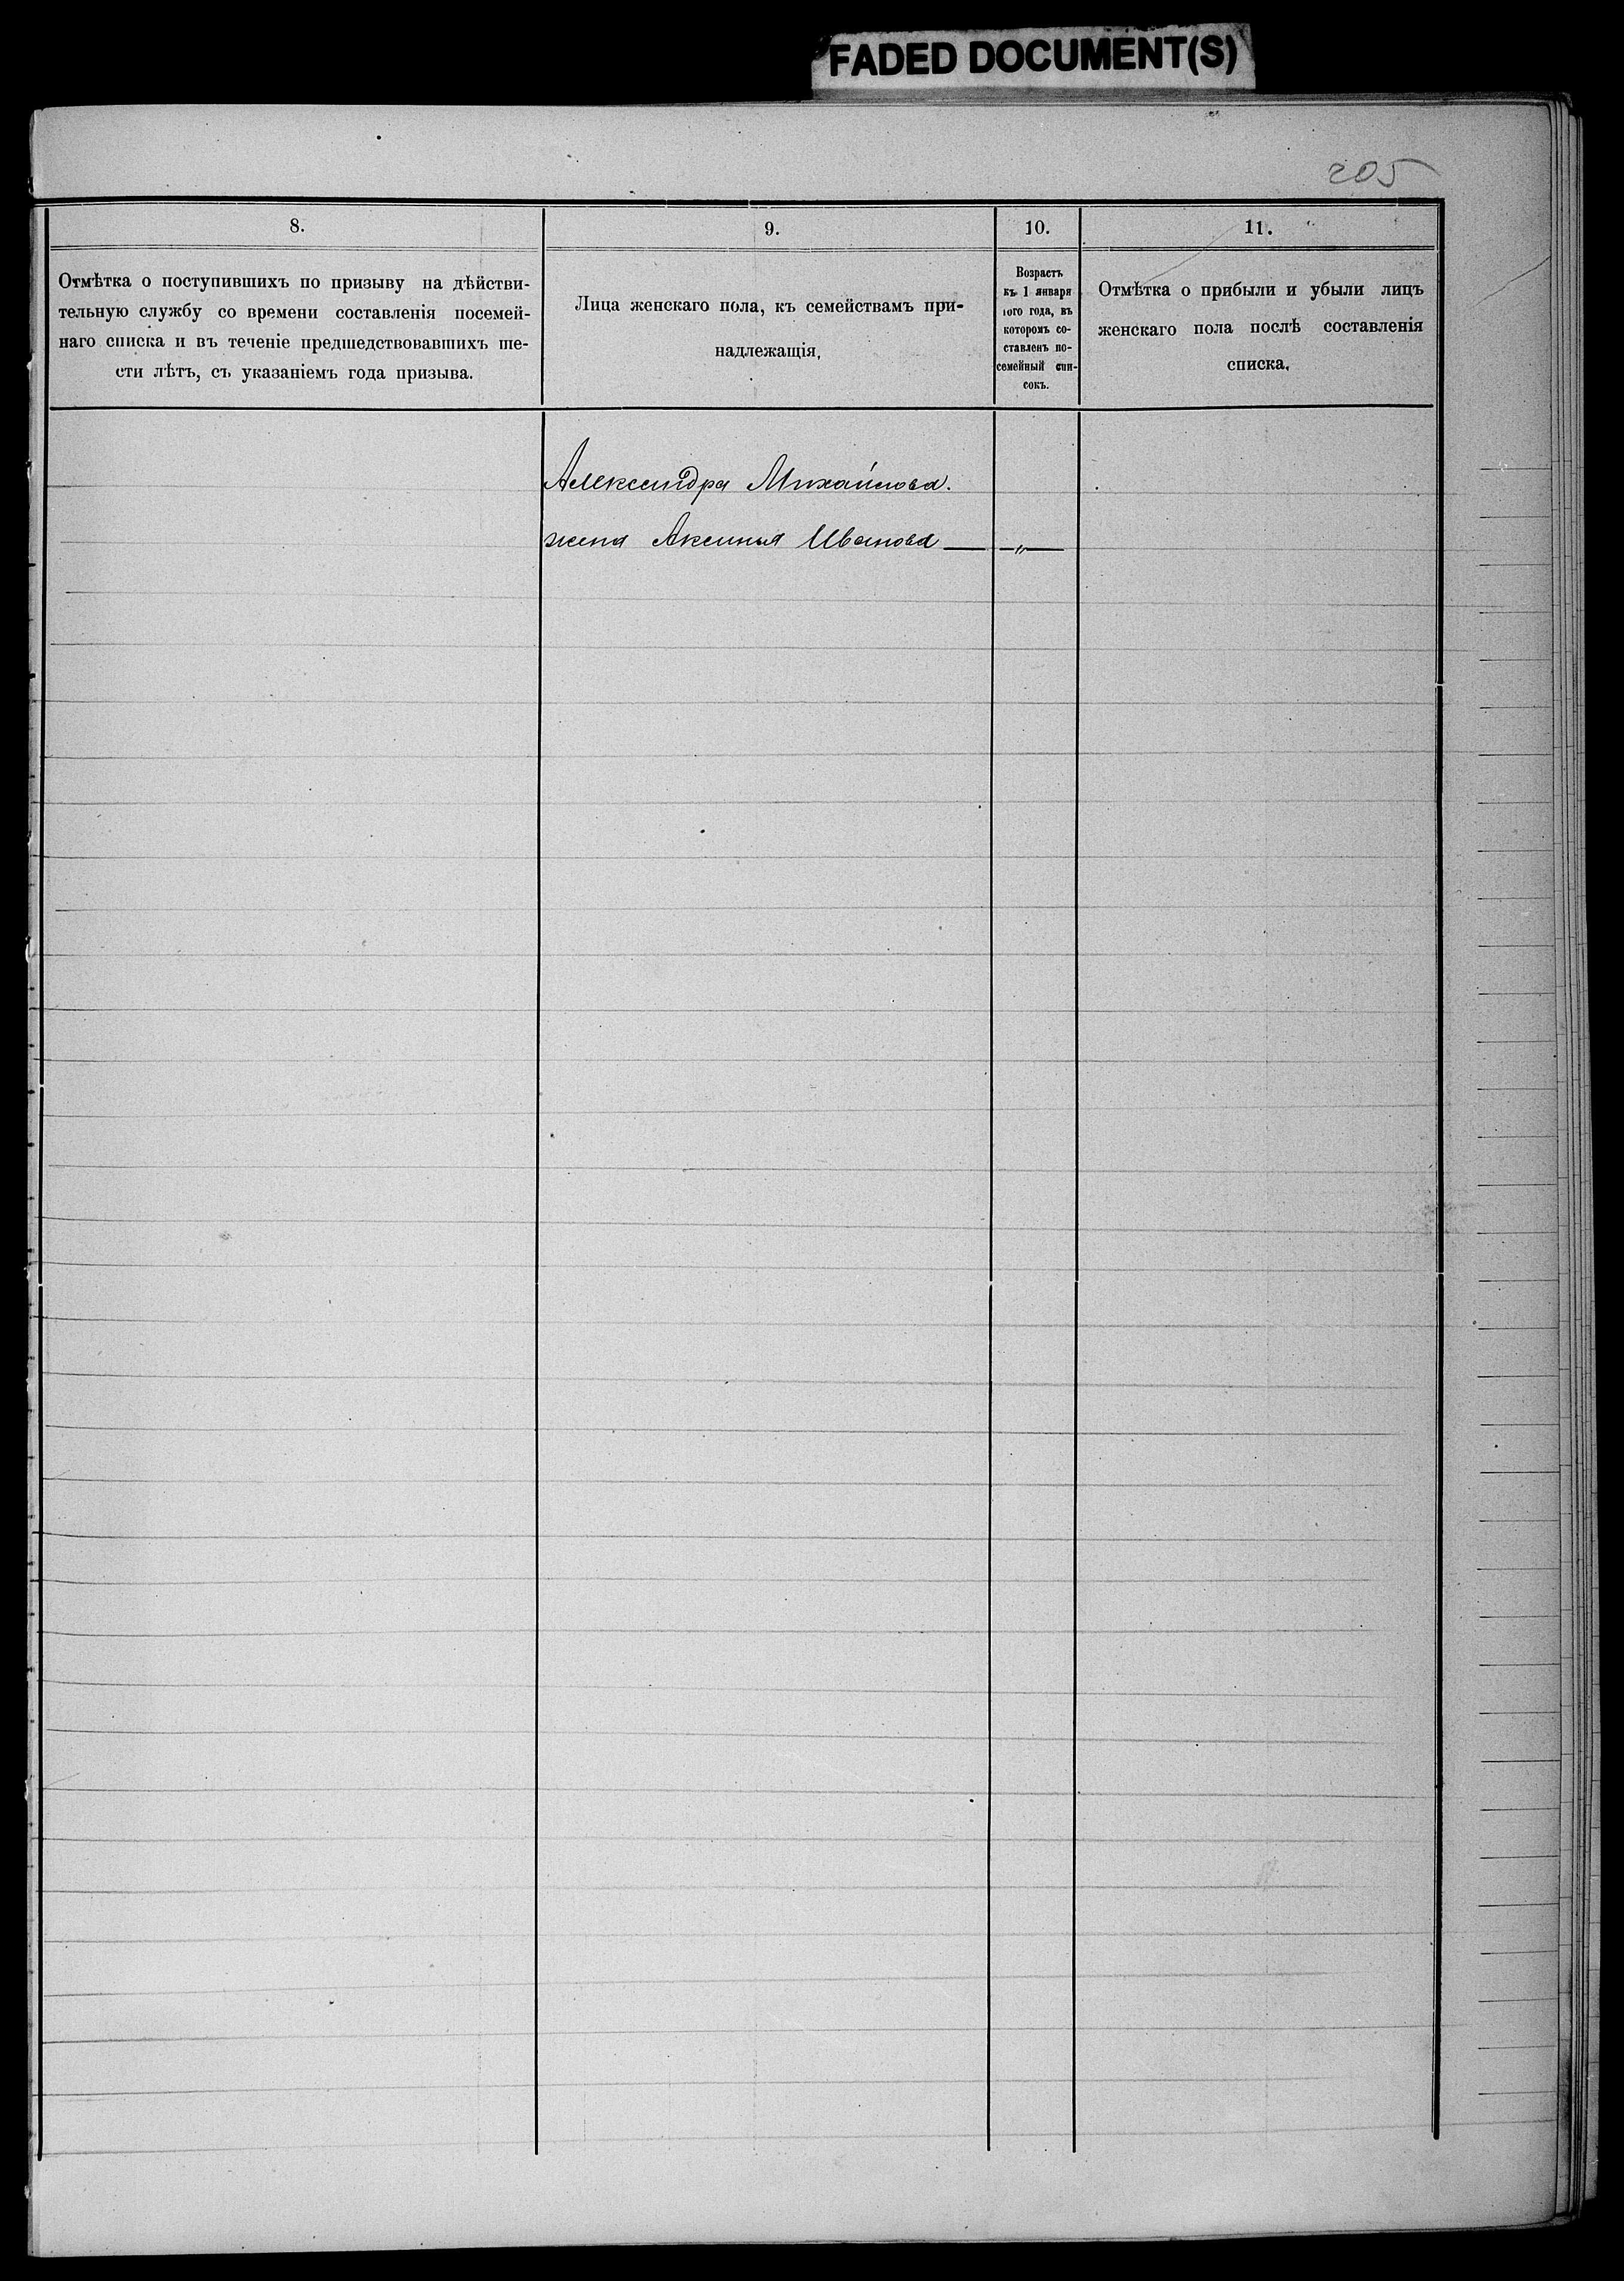 FADED DOCUMENT(S)
205
8.
9.
10.
11.
Отмѣтка о поступившихъ по призыву на дѣйстви-
тельную службу со времени составленія посемей-
наго списка и въ теченіе предшедствовавшихъ ше-
сти лѣтъ, съ указаніемъ года призыва.
Лица женскаго пола, къ семействамъ при-
надлежащія.
Возрастъ
къ 1 января
того года, въ
которомъ со-
ставленъ по-
семейный спи-
сокъ.
Отмѣтка о прибыли и убыли лицъ
женскаго пола послѣ составленія
списка.
Александра Михайлова.
жена Аксинья Иванова — —„—